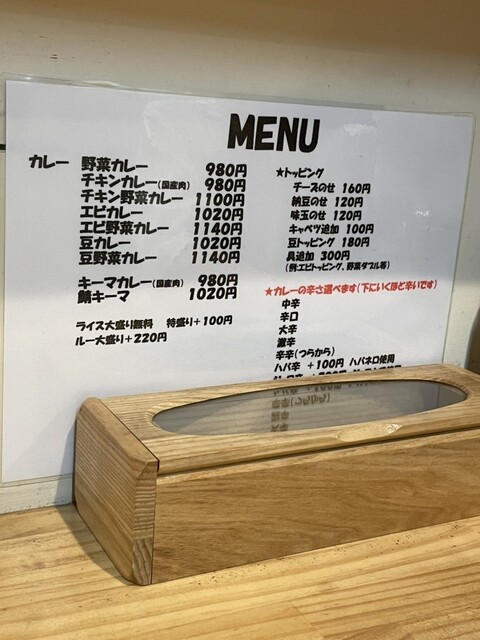 MENU
カレー 野菜カレー 980円
チキンカレー(国産肉) 980円
チキン野菜カレー 1100円
エビカレー 1020円
エビ野菜カレー 1140円
豆カレー 1020円
豆野菜カレー 1140円
キーマカレー(国産肉) 980円
鯖キーマ 1020円
ライス大盛り無料 特盛り+100円
ルー大盛り+220円
★トッピング
チーズのせ 160円
納豆のせ 120円
味玉のせ 120円
キャベツ追加 100円
豆トッピング 180円
具追加 300円
(例:エビトッピング、野菜ダブル等)
★カレーの辛さ選べます(下にいくほど辛いです)
中辛
辛口
大辛
激辛
辛辛(つらから)
ハバ辛 +100円 ハバネロ使用